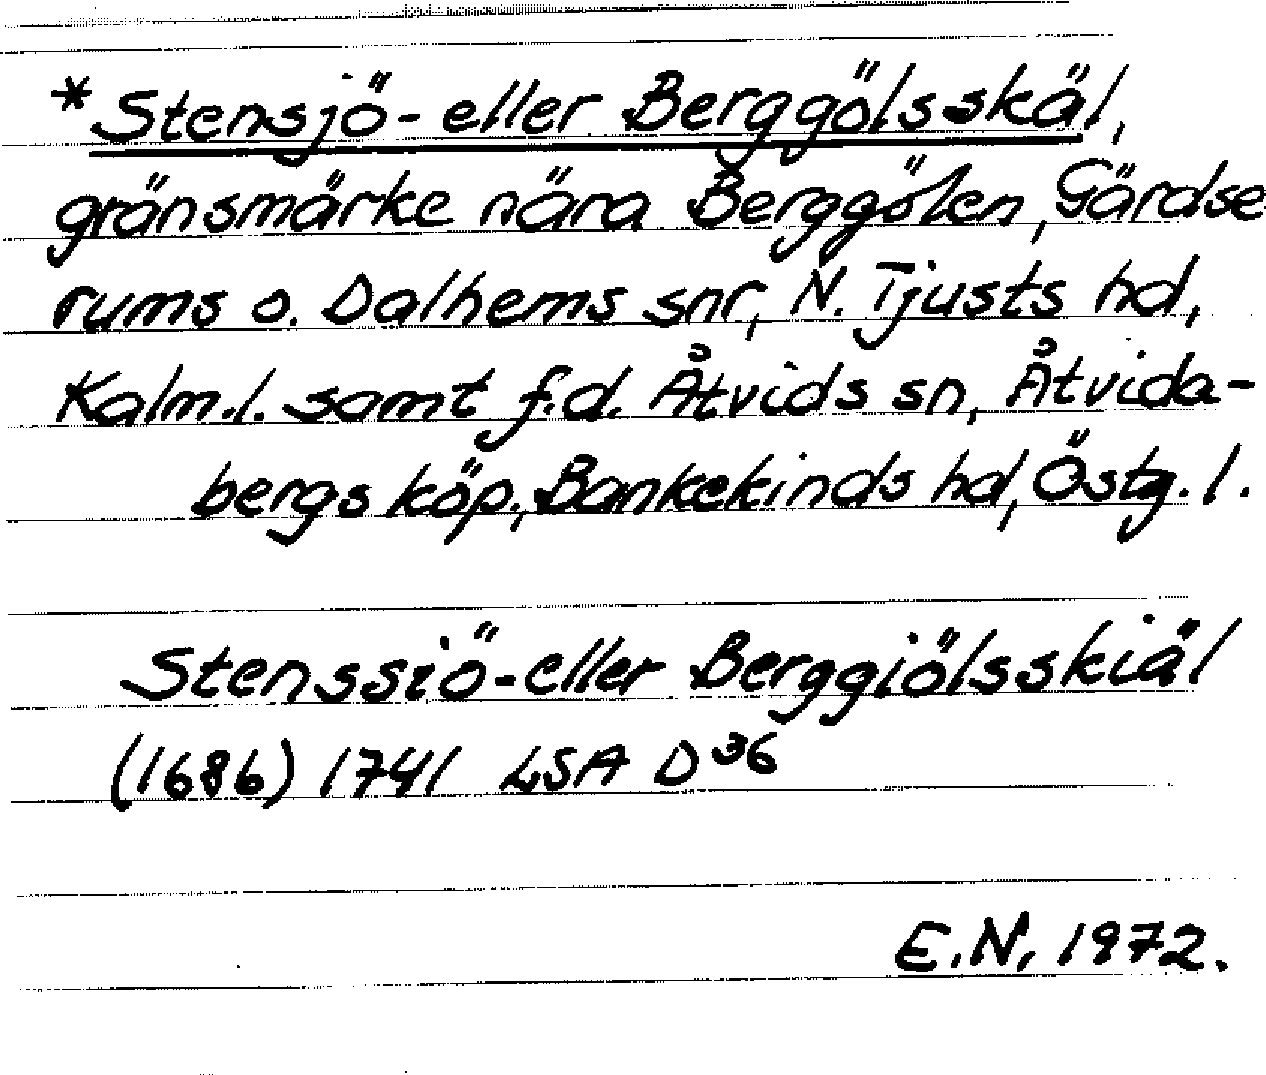 *Stensjö- eller Berggölsskäl,
gränsmärke nära Berggölen, Gärdse
rums o. Dalhems snr, N. Tjusts hd,
Kalm.l. samt f.d. Åtvids sn, Åtvida-
bergs köp., Bankekinds hd, Östg. l.
Stenssiö- eller Berggiölsskiäl
(1686) 1741 LSA D 36
E.N, 1972.